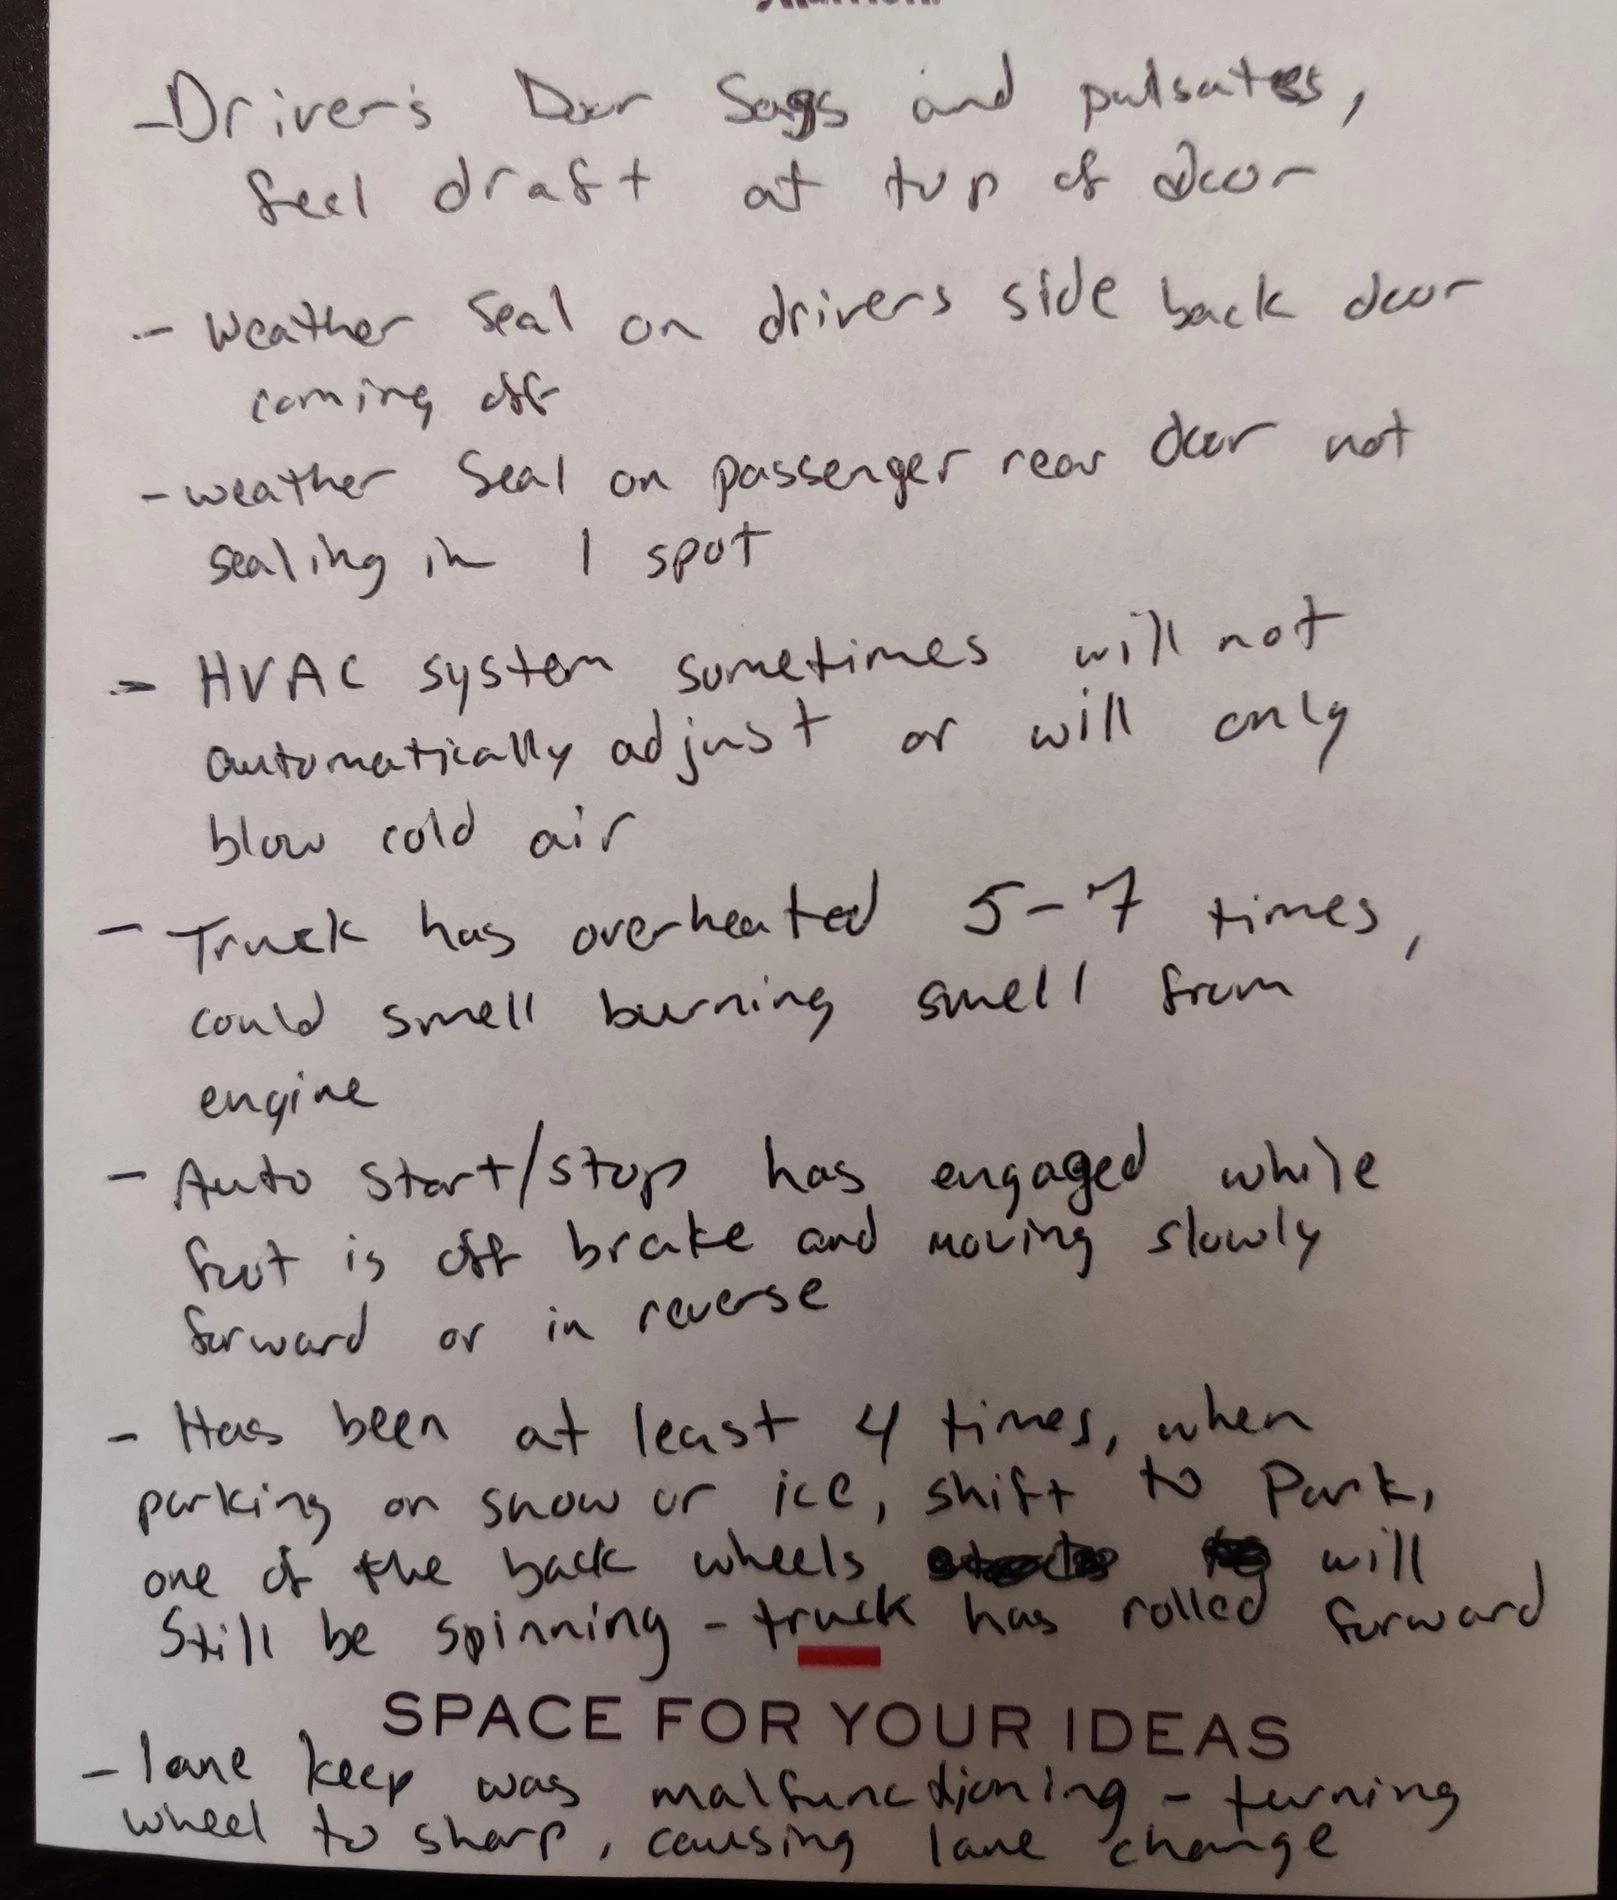 -Driver's Door Sags and pulsates,
feel draft at top of door
- Weather Seal on drivers side back door
coming off
- weather Seal on passenger rear door not
sealing in 1 spot
- HVAC system sometimes will not
automatically adjust or will only
blow cold air
- Truck has overheated 5-7 times,
could smell burning smell from
engine
- Auto start/stop has engaged while
foot is off brake and moving slowly
forward or in reverse
- Has been at least 4 times, when
parking on snow or ice, shift to Park,
one of the back wheels will
Still be spinning - truck has rolled forward
SPACE FOR YOUR IDEAS
- lane keep was malfunctioning - turning
wheel to sharp, causing lane change